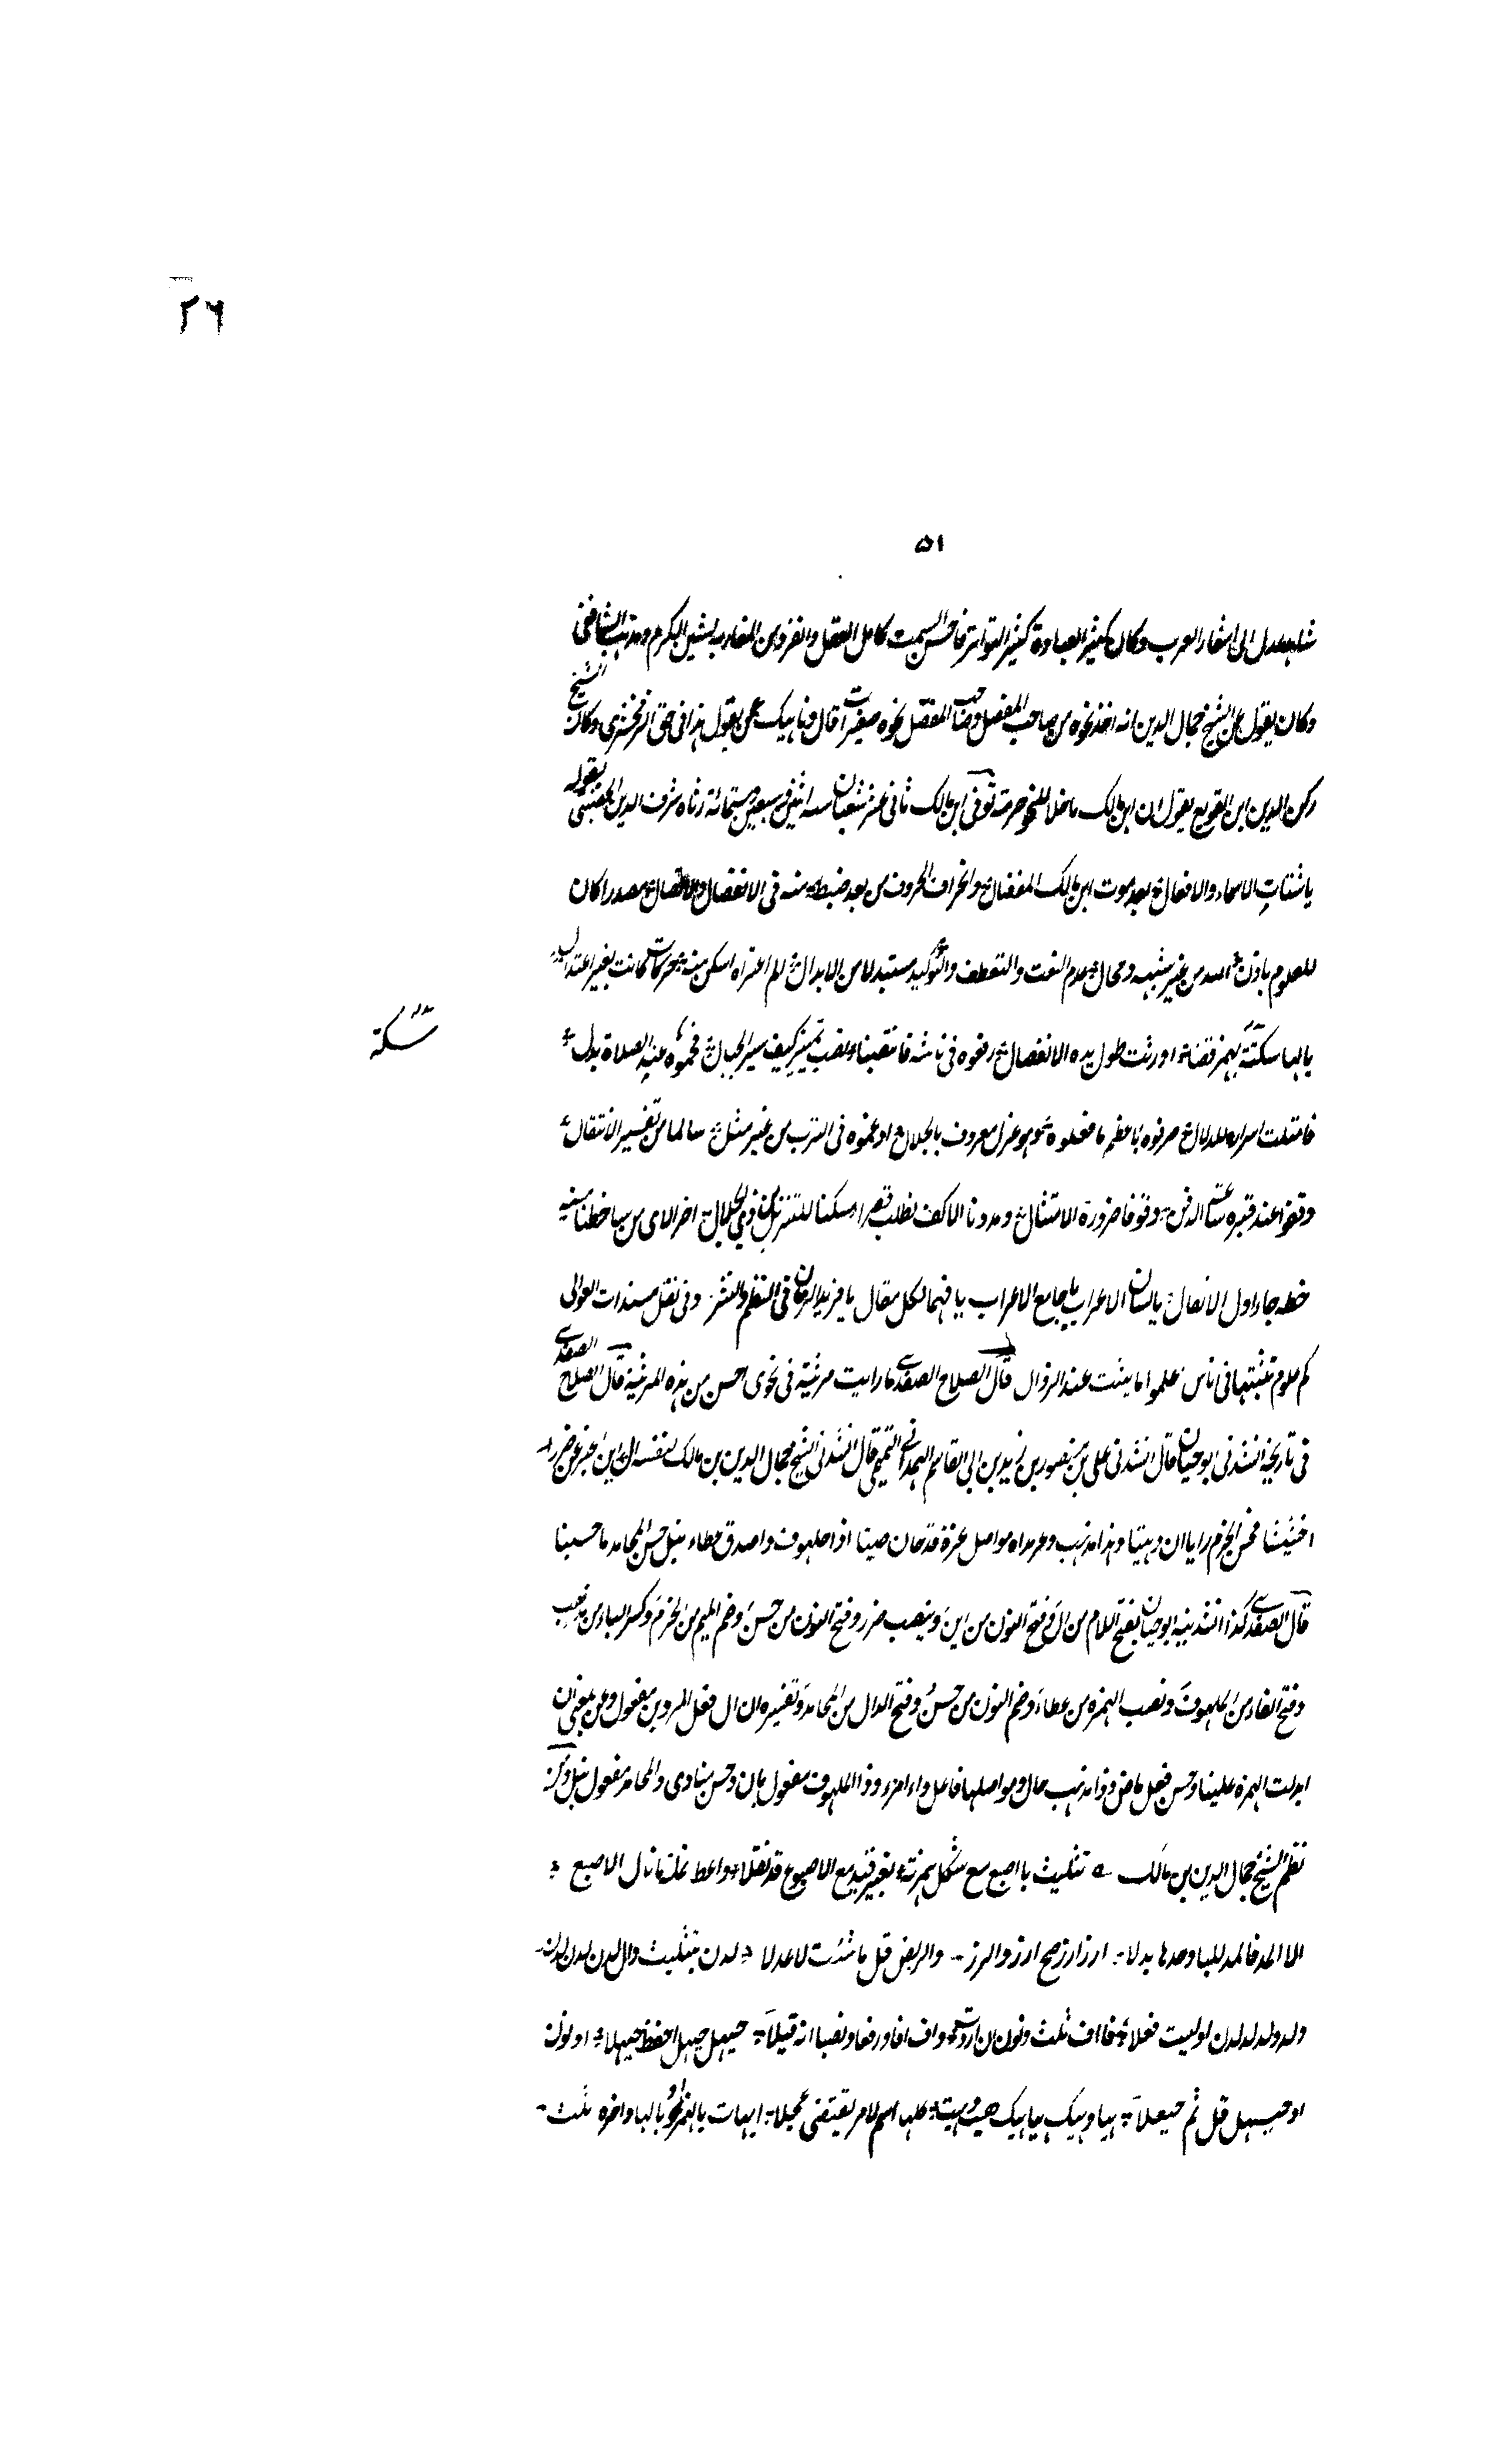 ٢٦
٥١
شاهد عدل الى اشعار العرب وكان كثير العبادة كثير النوافل حسن السمت كامل العقل وانفرد عن المغاربة بشيئين الكرم ومذهب الشافعى
وكان يقول عن الشيخ جمال الدين انه اخذ نحوه من صاحب المفصل وصاحب المفصل نحوه صغيرات قال وناهيك بمن يقول هذا فى حق الزمخشرى وكان الشيخ
ركن الدين ابن القوبع يقول ان ابن مالك ما خلا للنحو حرمة توفى ابن مالك ثانى عشر شعبان سنه اثنين وسبعين وستمائة رثاه شرف الدين الحصنى بقوله
يا شتات الاسماء والافعال بعد موت ابن مالك المفضال وانحراف الحروف من بعد ضبط منه فى الانفصال والاتصال مصدرا كان
للعلوم باذن الله من غير شبهه ومحال عدم النعت والتعطف والتوكيد مستبدلا من الابدال الم اعتراه اسكن منه حركات كانت بغير اعتلال
يالها سكتة بهمز قضاء اورثت طول مده الانفصال رفعوه فى نعشه فانتصبنا نصب تمييز كيف سير الجبال فخموه عند الصلاة بدل
سكتة
فاميلت اسراره للدلال صرفوه يا عظم ما فعلوه وهو عدل معروف بالجلال ادغموه فى الترب من غير مثل سالما من تغيير الانتقال
وقفوا عند قبره ساعة الدفن وقوفا ضرورة الامتثال ومددنا الاكف نطلب قصرا مسكنا للتنزيل من ذى الجلال اخر الاى من سبا حظنا منه
حظه جاء اول الانفال يا لسان الاعراب يا جامع الاعراب يا فهما لكل مقال يا فريد الزمان فى النظم والنثر وفى نقل مسندات العوالى
كم علوم بثثتها فى اناس علموا ما بثثت عند الزوال قال الصلاح الصفدى ما رايت مرثية فى نحوى احسن من هذه المرثية قال الصلاح الصفدى
فى تاريخه انشدنى ابو حيان قال انشدنى على بن منصور بن زيد بن ابى القاسم الهمدانى التميمى قال انشدنى الشيخ جمال الدين بن مالك لنفسه ال اين خبر عن ضرر
اخشيتنا فحسن الحزم رايا ان دهيتا وهذا مذهب وعر مداه مواصل عزة قد حان صيتا اذا الملهوف واصدق عطاء بنيل حسن المحامد ما حسبنا
قال الصفدى كذا انشدنيه ابو حيان بفتح اللام من ال وفتح النون من اين وبنصب ضرر وفتح النون من حسن وضم الميم من الحزم وكسر الباء من مذهب
وفتح الفاء من الملهوف ونصب الهمزه من عطاء وضم النون من حسن وفتح الدال من المحامد وتفسيره ان ال فعل امر وين مفعول وعن بمعنى ان
ابدلت الهمزه عينا وحسن فعل ماض وذا مذهب حال ومواصلها فاعل واء امر وذا الملهوف مفعول بان وحسن منادى والمحامد مفعول بنيل ومن
نظم الشيخ جمال الدين بن مالك تثليث با اصبع مع شكل همزته بغير قيد مع الاصبوع قد نقلا واعط نملة ما نال الاصبع
الا المد فالمد للبا وحدها بدلا ارز ارز صح ارز والرز والرنز قل ما شئت لا عدلا لدن بتثليث دال لدن لدن
ولد ولد لد لدن اوليت فعلا فاف ثلث ونون ان اردت واف افا ورفعا ونصبا انه قبلا حيهل حيهل احفظ حيهلا او نون
او حيهل قل ثم حيعلا هيا وهيك هيا هيك هيت وهيت كلها اسم لامر يقتضى عجلا ايهات بالهمز او بالها واخره ثلث